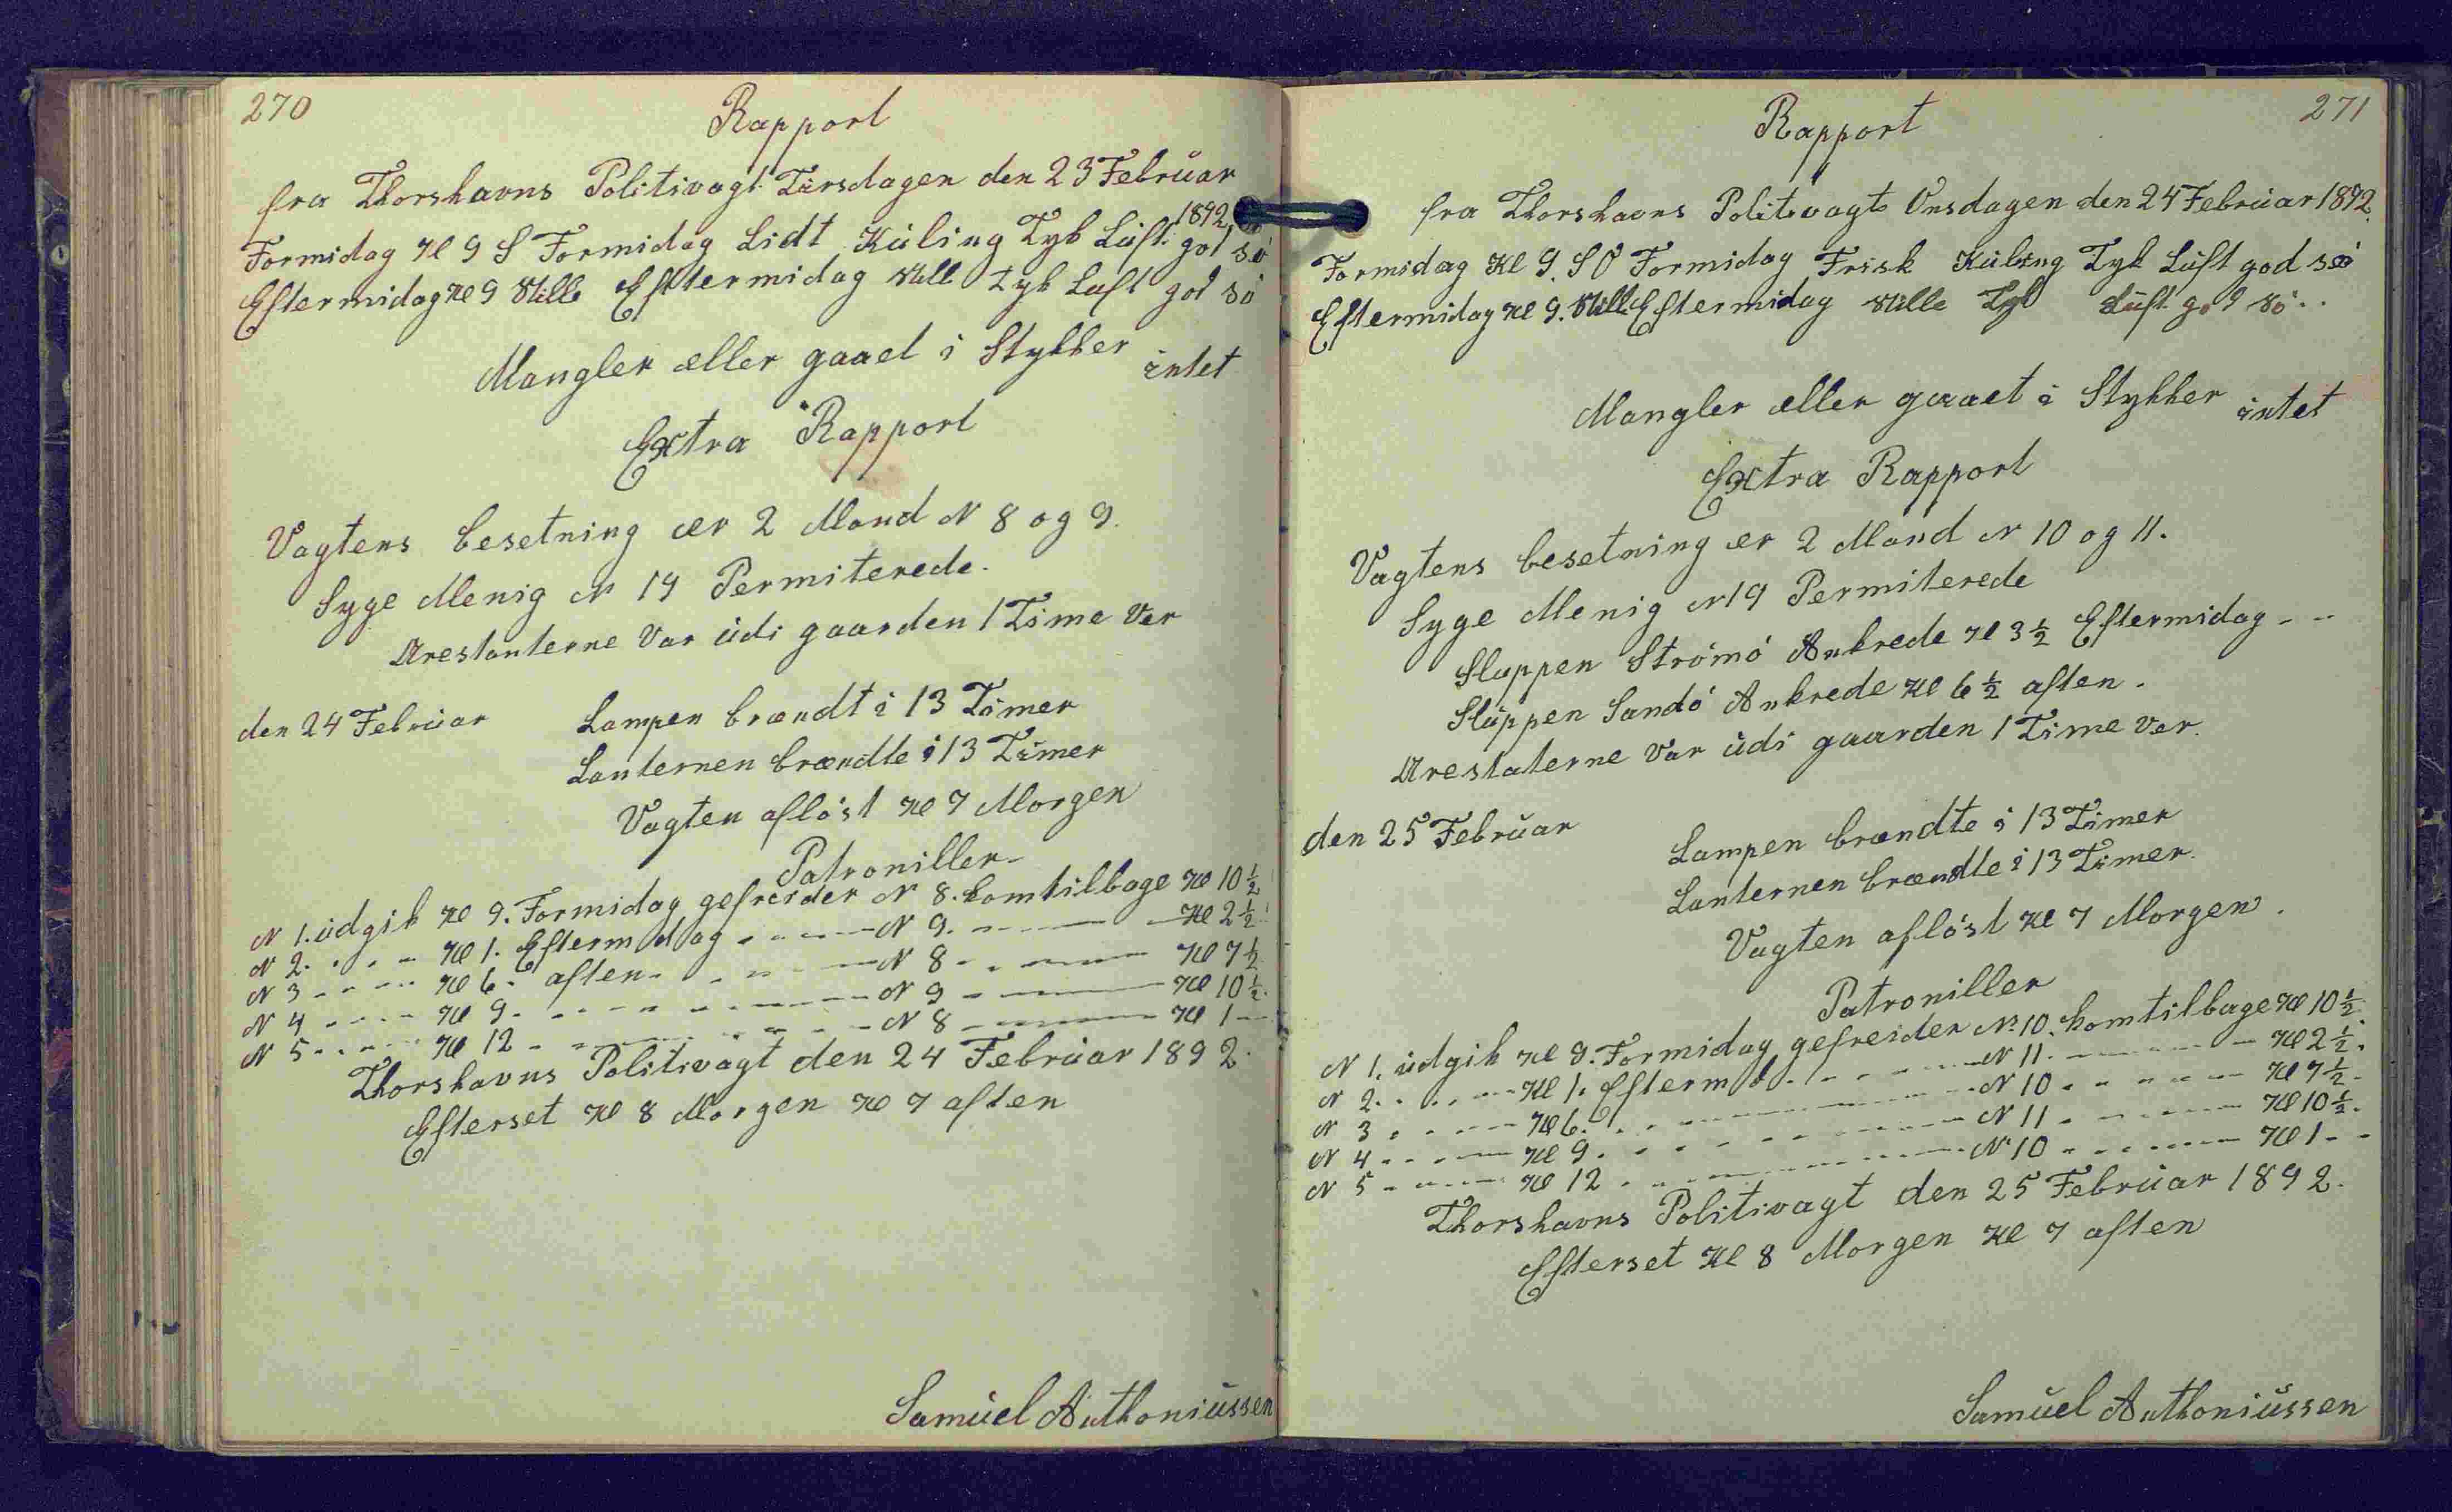 270
Rapport
fra Thorshavns Politivagt Tirsdagen den 23 Februar
1892
Formidag Kl 9 S Formidag Lidt Kuling Tyk Luft. got sö
Eftermidag Kl 9 Stille Eftermidag still tyk Luft got sö
Mangler eller gaaet i Stykker intet
Extra Rapport
Vagtens besetning er 2 Mand N 8 og 9.
Syge Menig N 19 Permiterede.
Arestanterne Var udi gaarden 1 Time Ver
den 24 Februar Lampen brændt i 13 Timer
Lanternen brændte i 13 Timer
Vagten aflöst Kl 7 Morgen
Patroniller
N 1. udgik Kl 9. Formidag gefreider N 8. kom tilbage Kl 10 ½
N 2. - - - Kl 1. Efterm dag - - - N 9. - - - Kl 2 ½
N 3 - - - Kl 6. aften - - - N 8 - - - Kl 7 ½
N 4 - - - Kl 9. - - - N 9 - - - Kl 10 ½.
N 5 - - - Kl 12 - - - N 8 - - - Kl 1 -
Thorshavns Politivagt den 24 Februar 1892.
Efterset Kl 8 Morgen Kl 7 aften
Samuel Anthoniussen
271
Rapport
fra Thorshavns Politivagt Onsdagen den 24 Februar 1892.
Formidag Kl 9. SO Formidag Frisk Kuling Tyk Luft god sö
Eftermidag Kl 9. Still Eftermidag stille Tyk Luft god sö..
Mangler eller gaaet i Stykker intet
Extra Rapport
Vagtens besetning er 2 Mand N 10 og 11.
Syge Menig N 19 Permiterede
Sluppen Strömö Ankrede Kl 3 ½ Eftermidag - -
Sluppen Sandö Ankrede Kl 6 ½ aften.
Arestaterne Var udi gaarden 1 Time Ver.
den 25 Februar Lampen brændte i 13 Timer
Lanternen brændte i 13 Timer.
Vagten aflöst Kl 7 Morgen.
Patroniller
N 1. udgik Kl 9. Formidag gefreider N 10. kom tilbage Kl 10 ½
N 2. - - - Kl 1. Efterm d. - - - N 11. - - - Kl 2 ½.
N 3 - - - Kl 6. - - - N 10 - - - Kl 7 ½ -
N 4 - - - Kl 9. - - - N 11 - - - Kl 10 ½.
N 5 - - - Kl 12 - - - N 10 - - - Kl 1 - -
Thorshavns Politivagt den 25 Februar 1892.
Efterset Kl 8 Morgen Kl 7 aften
Samuel Anthoniussen